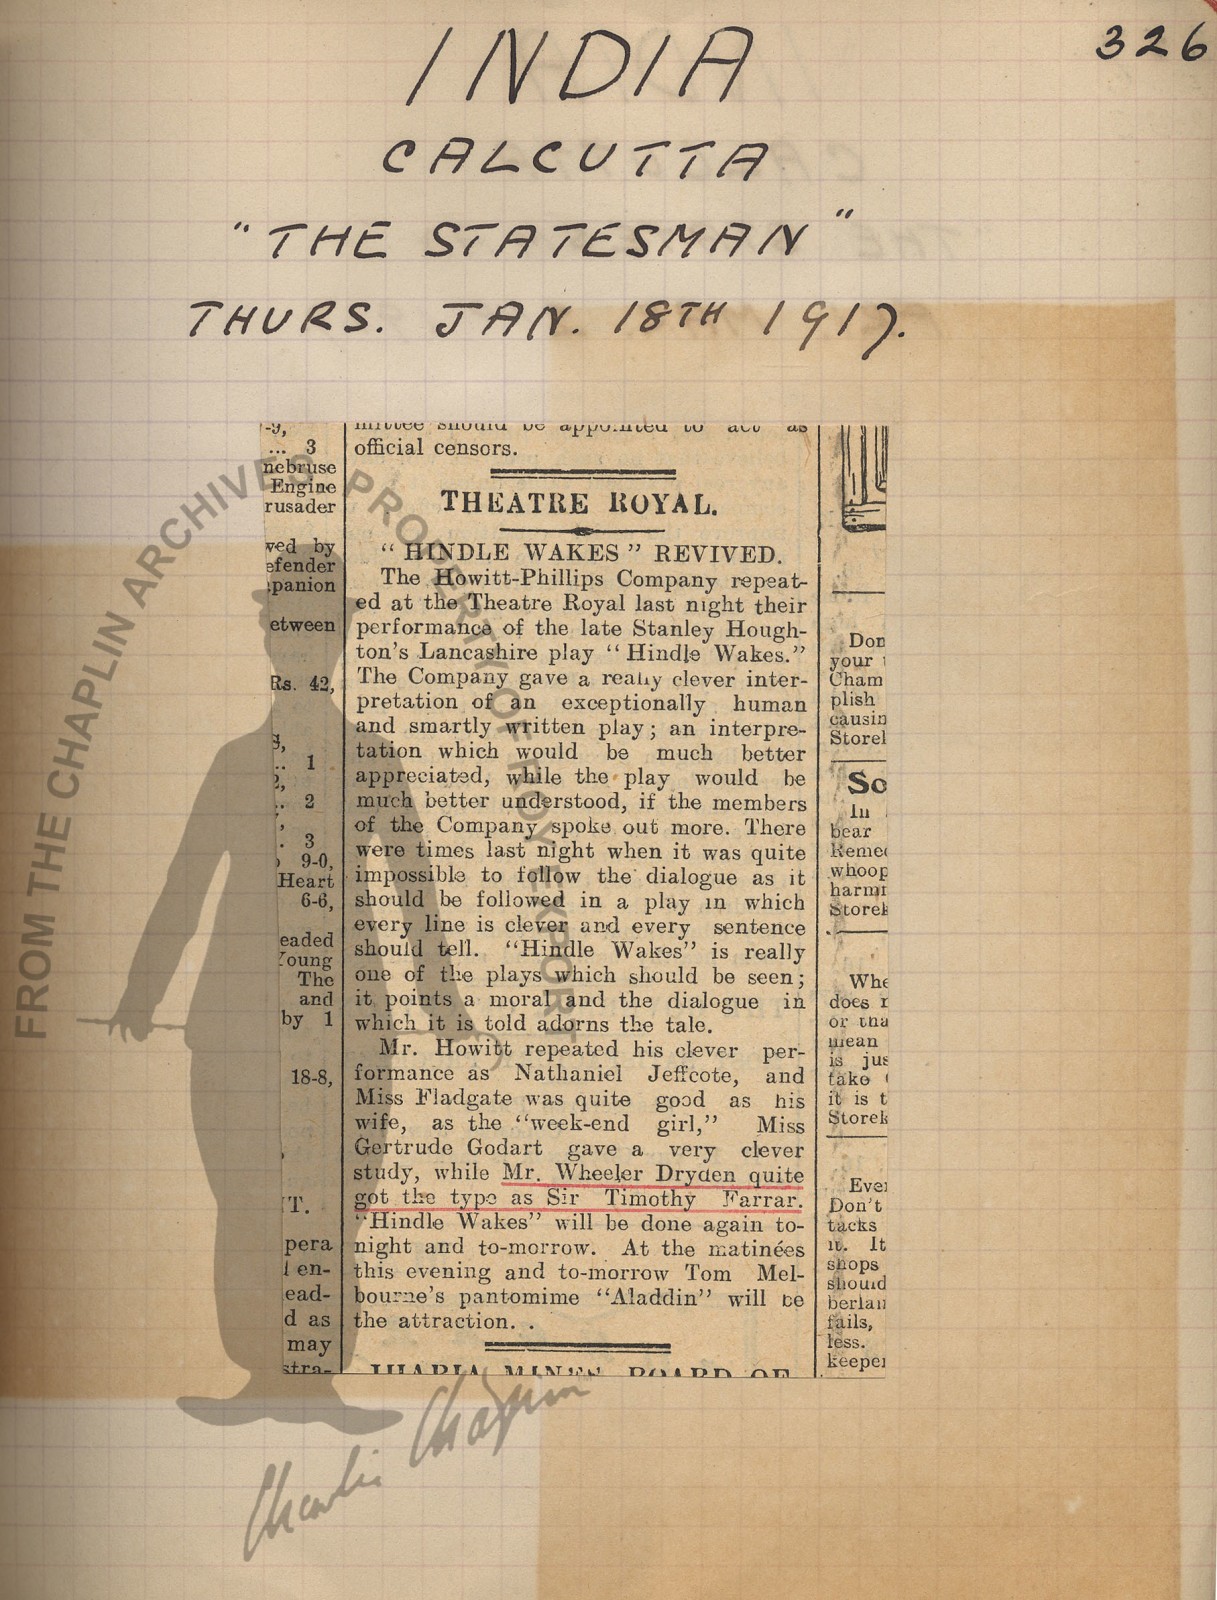 326
INDIA
CALCUTTA
"THE STATESMAN"
THURS. JAN. 18TH 1917.
mittee should be appointed to act as
official censors.
THEATRE ROYAL.
"HINDLE WAKES" REVIVED.
The Howitt-Phillips Company repeat-
ed at the Theatre Royal last night their
performance of the late Stanley Hough-
ton's Lancashire play "Hindle Wakes."
The Company gave a really clever inter-
pretation of an exceptionally human
and smartly written play; an interpre-
tation which would be much better
appreciated, while the play would be
much better understood, if the members
of the Company spoke out more. There
were times last night when it was quite
impossible to follow the dialogue as it
should be followed in a play in which
every line is clever and every sentence
should tell. "Hindle Wakes" is really
one of the plays which should be seen;
it points a moral and the dialogue in
which it is told adorns the tale.
Mr. Howitt repeated his clever per-
formance as Nathaniel Jeffcote, and
Miss Fladgate was quite good as his
wife, as the "week-end girl," Miss
Gertrude Godart gave a very clever
study, while Mr. Wheeler Dryden quite
got the type as Sir Timothy Farrar.
"Hindle Wakes" will be done again to-
night and to-morrow. At the matinées
this evening and to-morrow Tom Mel-
bourne's pantomime "Aladdin" will be
the attraction. .
JHARIA MINES BOARD OF
-9,
... 3
nebruse
Engine
rusader
ved by
efender
panion
etween
Rs. 42,
.. 1
.. 2
. 3
9-0,
Heart
6-6,
eaded
Young
The
and
by 1
18-8,
T.
pera
l en-
ead-
d as
may
stra-
Don
your
Cham
plish
causin
Storek
So
In
bear
Remed
whoop
harm
Storek
Whe
does
or tha
mean
is jus
take
it is t
Storek
Ever
Don't
tacks
it. It
shops
should
berlain
fails,
less.
keeper
FROM THE CHAPLIN ARCHIVES PROPERTY OF ROY EXPORT
Charlie Chaplin